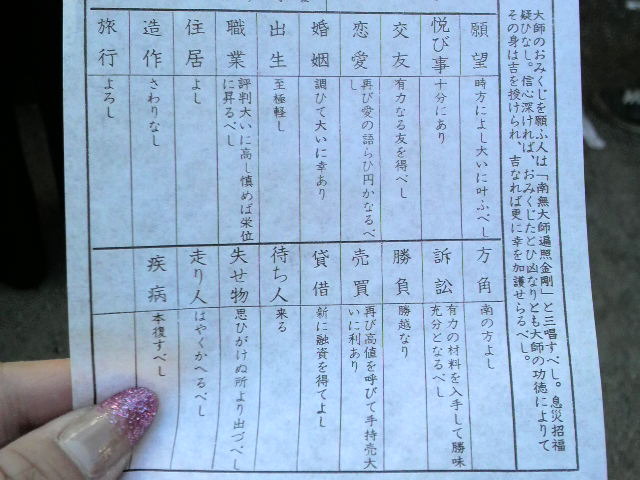 大師のおみくじを願ふ人は「南無大師遍照金剛」と三唱すべし。息災招福
疑ひなし。信心深ければ、おみくじたとひ凶なりとも大師の功徳によりて
その身は吉を授けられ、吉なれば更に幸を加護せらるべし。
願望
時方によし大いに叶ふべし
悦び事
十分にあり
交友
有力なる友を得べし
恋愛
再び愛の語らひ円かなるべ
し
婚姻
調ひて大いに幸あり
出生
至極軽し
職業
評判大いに高し慎めば栄位
に昇るべし
住居
よし
造作
さわりなし
旅行
よろし
方角
南の方よし
訴訟
有力の材料を入手して勝味
充分となるべし
勝負
勝越なり
売買
再び高値を呼びて手持売大
いに利あり
貸借
新に融資を得てよし
待ち人
来る
失せ物
思ひがけぬ所より出づべし
走り人
はやくかへるべし
疾病
本復すべし